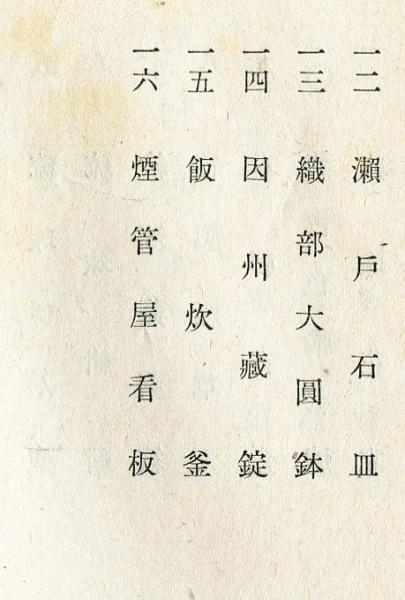 一二 瀬戸石皿
一三 織部大圓鉢
一四 因州藏錠
一五 飯炊釜
一六 煙管屋看板